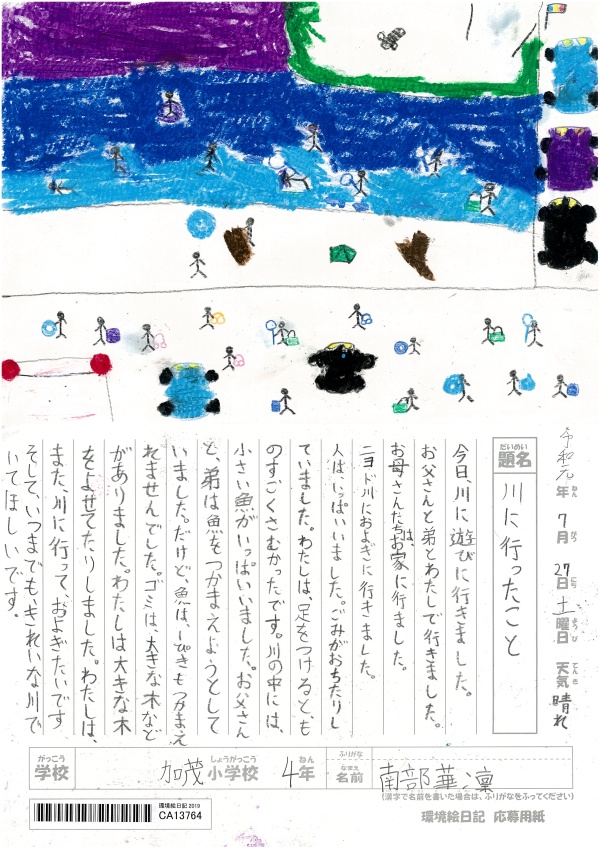 令和元年7月27日土曜日 天気晴れ
ねん がつ にち ようび てんき
だいめい
題名
川に行ったこと
今日、川に遊びに行きました。
お父さんと弟とわたしで行きました。
お母さんたちは、お家に行ました。
ニヨド川におよぎに行きました。
人は、いっぱいいました。ごみがおちたりし
ていました。わたしは、足をつけると、も
のすごくさむかったです。川の中には、
小さい魚がいっぱいいました。お父さん
と、弟は魚をつかまえようとして
いました。だけど、魚は、1ぴきもつかまえ
れませんでした。ゴミは、大きな木など
がありました。わたしは大きな木
をよせてたりしました。わたしは、
また、川に行って、およぎたいです
そして、いつまでも、きれいな川で
いてほしいです。
がっこう
学校
加茂小学校
しょうがっこう
4年
ねん
ふりがな
なまえ
名前
南部華凜
(漢字で名前を書いた場合は、ふりがなをふってください)
環境絵日記 2019
CA13764
環境絵日記 応募用紙